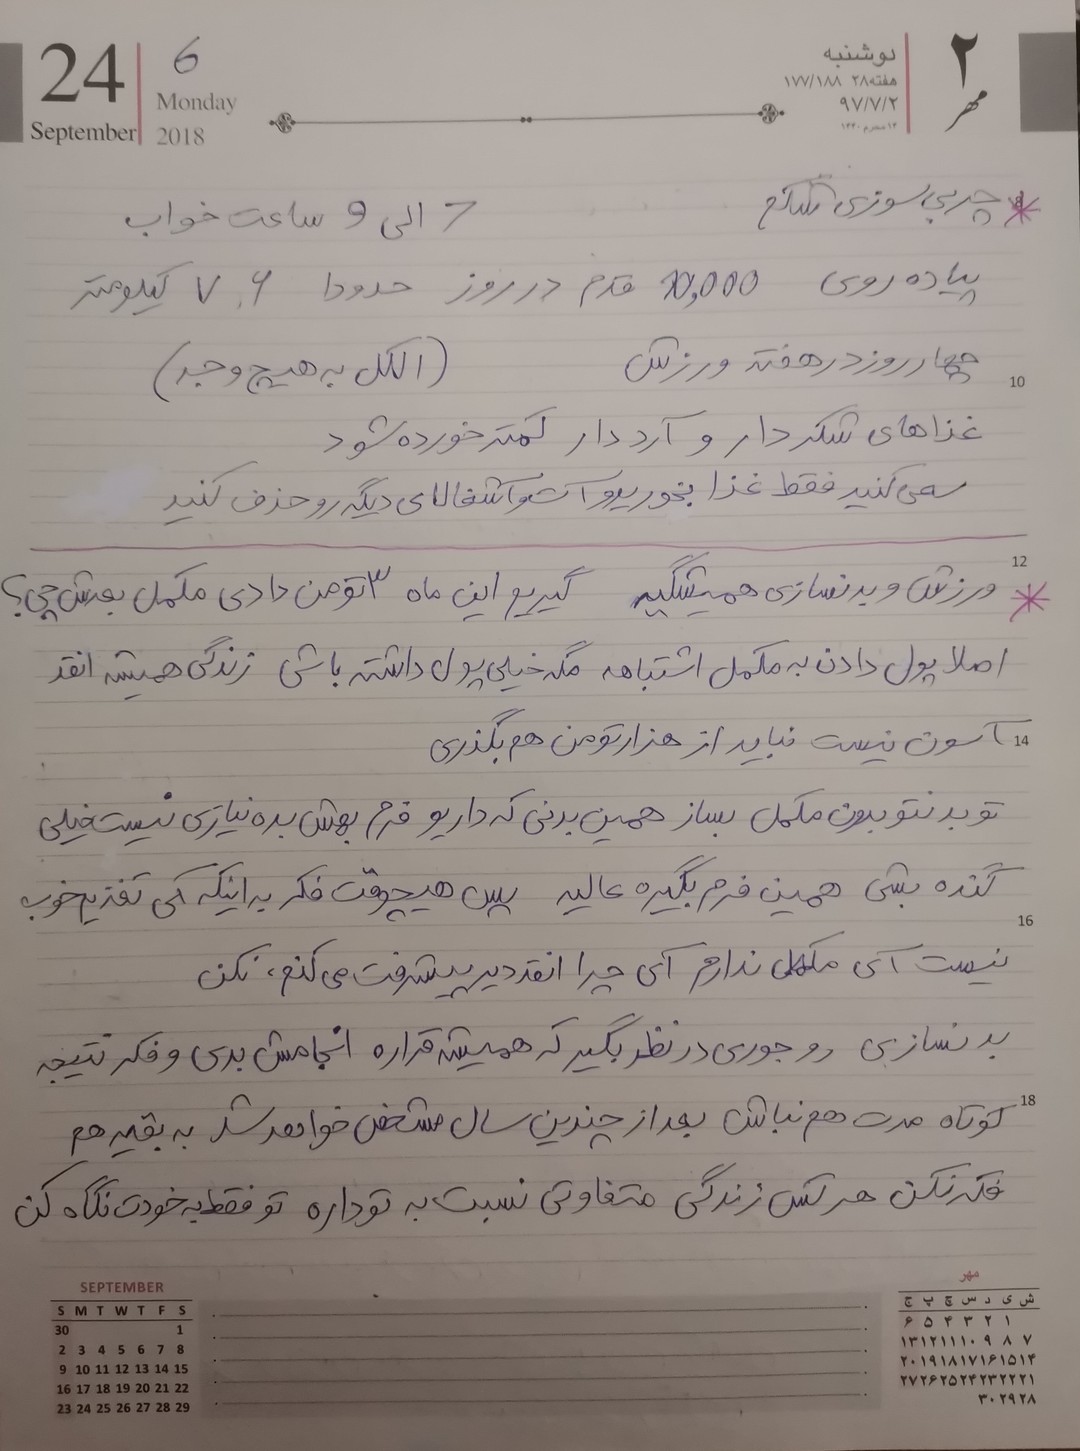 24
September
6
Monday
2018
دوشنبه
هفته ۲۸ ۱۷۷/۱۸۸
۹۷/۷/۲
۱۳ محرم ۱۴۴۰
۲
مهر
* چربی سوزی شکم 7 الی 9 ساعت خواب
پیاده روی 10,000 قدم در روز حدودا ۷.۶ کیلومتر
چهار روز در هفته ورزش (الکل به هیچ وجه)
10
غذاهای شکر دار و آرد دار کمتر خورده شود
سعی کنید فقط غذا بخورید و آت و آشغالای دیگه رو حذف کنید
12
* ورزش و بدنسازی همیشگیه گیریم این ماه ۳ تومن دادی مکمل بعدش چی؟
اصلا پول دادن به مکمل اشتباهه مگه خیلی پول داشته باشی زندگی همیشه انقد
14
آسون نیست نباید از هزار تومن هم بگذری
تو بدنتو بدون مکمل بساز همین بدنی که داریو فرم بهش بده نیازی نیست خیلی
گنده بشی همین فرم بگیره عالیه پس هیچوقت فکر به اینکه آی تغذیم خوب
16
نیست آی مکمل ندارم آی چرا انقد دیر پیشرفت می کنم، نکن
بدنسازی رو جوری در نظر بگیر که همیشه قراره انجامش بدی و فکر نتیجه
18
کوتاه مدت هم نباش بعد از چندین سال مشخص خواهد شد به بقیه هم
فکر نکن هر کس زندگی متفاوتی نسبت به تو داره تو فقط به خودت نگاه کن
SEPTEMBER
S M T W T F S
30 1
2 3 4 5 6 7 8
9 10 11 12 13 14 15
16 17 18 19 20 21 22
23 24 25 26 27 28 29
مهر
ش ی د س چ پ ج
۱ ۲ ۳ ۴ ۵ ۶
۷ ۸ ۹ ۱۰ ۱۱ ۱۲ ۱۳
۱۴ ۱۵ ۱۶ ۱۷ ۱۸ ۱۹ ۲۰
۲۱ ۲۲ ۲۳ ۲۴ ۲۵ ۲۶ ۲۷
۲۸ ۲۹ ۳۰